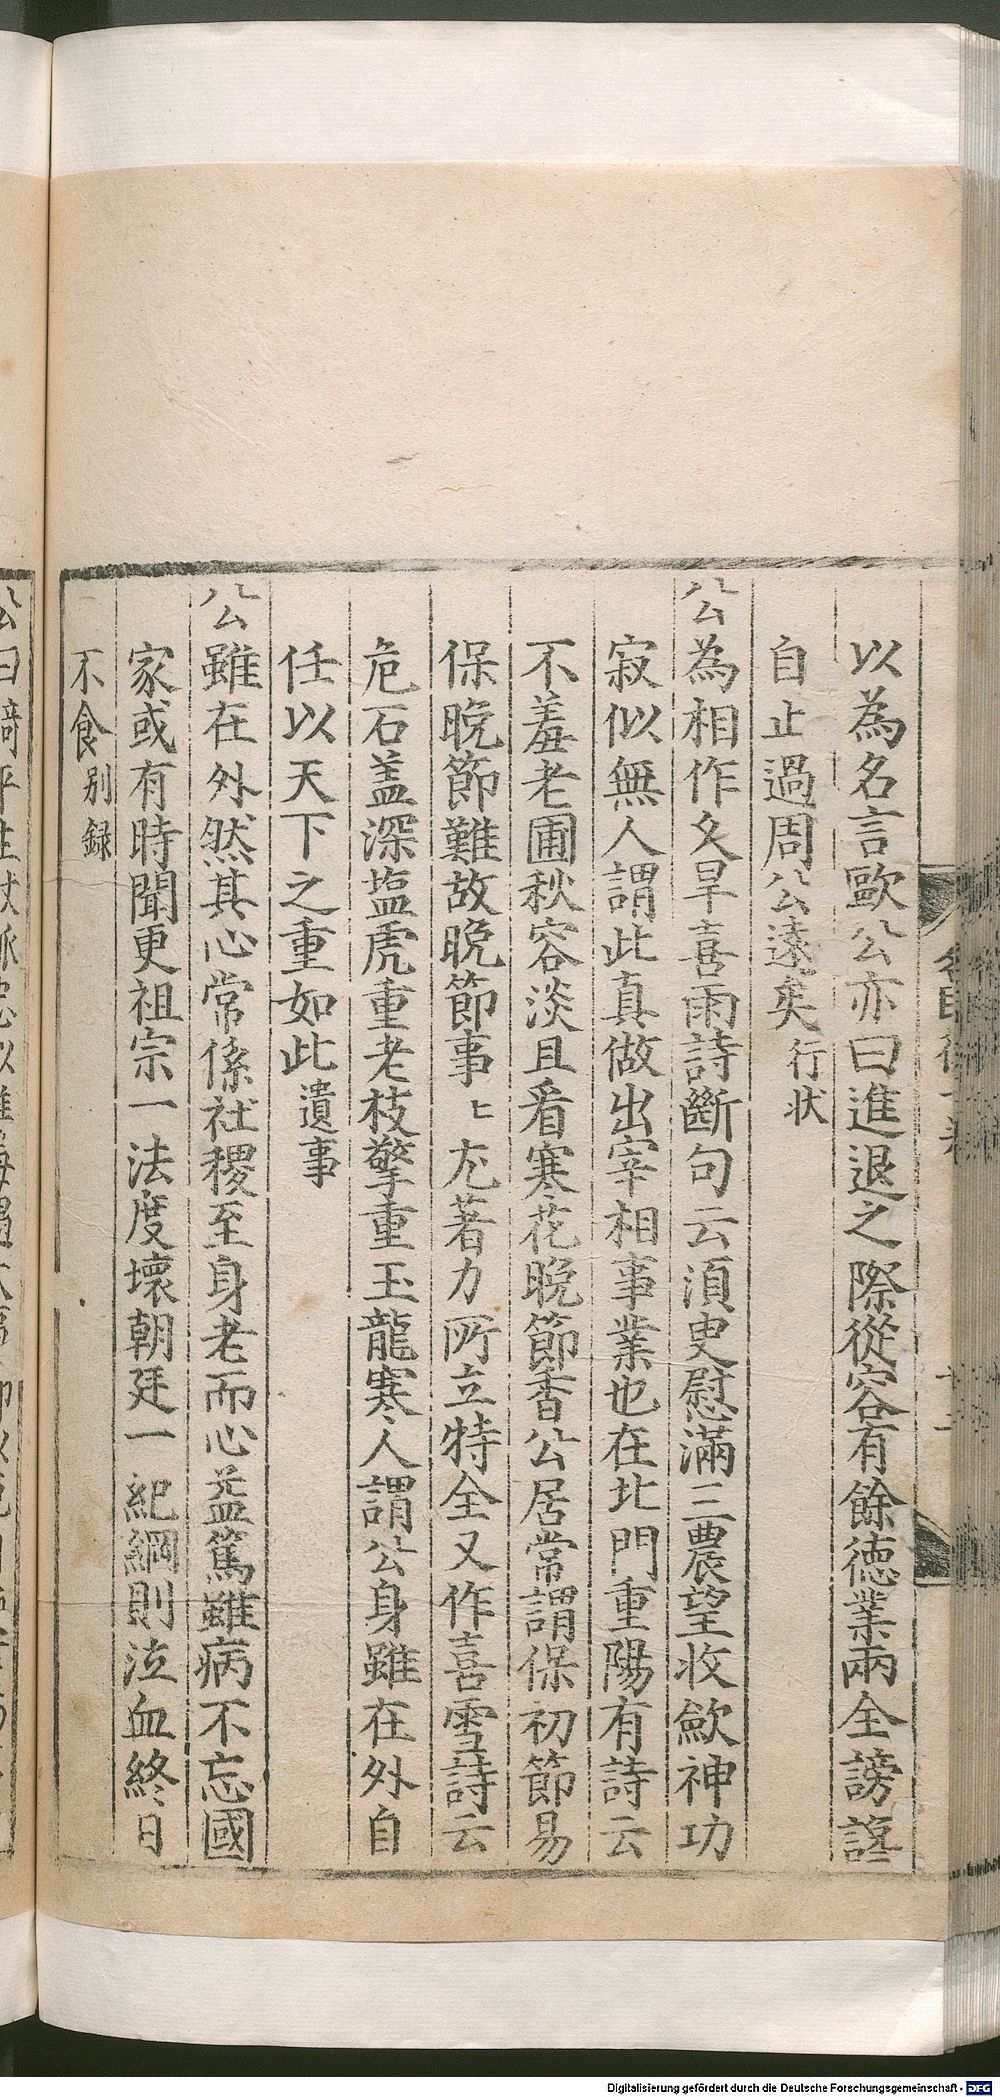 以為名言歐公亦曰進退之際從容有餘德業兩全謗讟
自止過周公遠矣行状
公為相作久旱喜雨詩斷句云湏㬰慰滿三農望收歛神功
寂似無人謂此真做出宰相事業也在北門重陽有詩云
不羞老圃秋容淡且㸔寒花晚節香公居常謂保初節易
保晚節難故晚節事〻尤著力所立特全又作喜雪詩云
危石盖深塩虎重老枝擎重玉龍寒人謂公身雖在外自
任以天下之重如此遺事
公雖在外然其心常係社稷至身老而心益篤雖病不忘國
家或有時聞更祖宗一法度壞朝廷一紀綱則泣血終日
不食别録
Digitalisierung gefördert durch die Deutsche Forschungsgemeinschaft - DFG